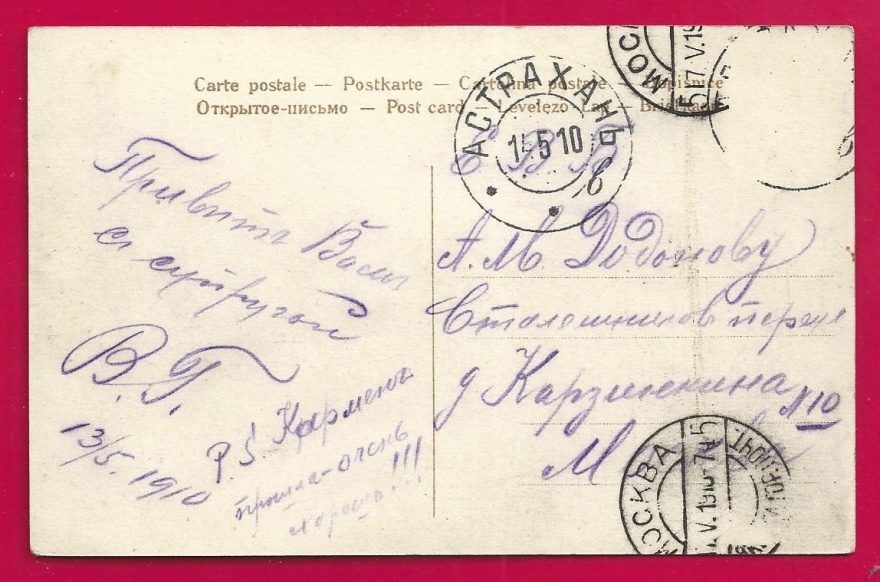 Carte postale — Postkarte — Cartolina postale
Открытое-письмо — Post card — Levelező Lap
АСТРАХАНЬ
14 5 10
в
МОСК
17 V.19
Привѣтъ Вамъ
съ супругой
В.Г.
13/5. 1910
P.S. Карменъ
прошла-очень
хорошо!!!
Е. В. Б.
А. М. Додонову
Столешниковъ переул
д Карзинкина
№10
М
МОСКВА
V.19